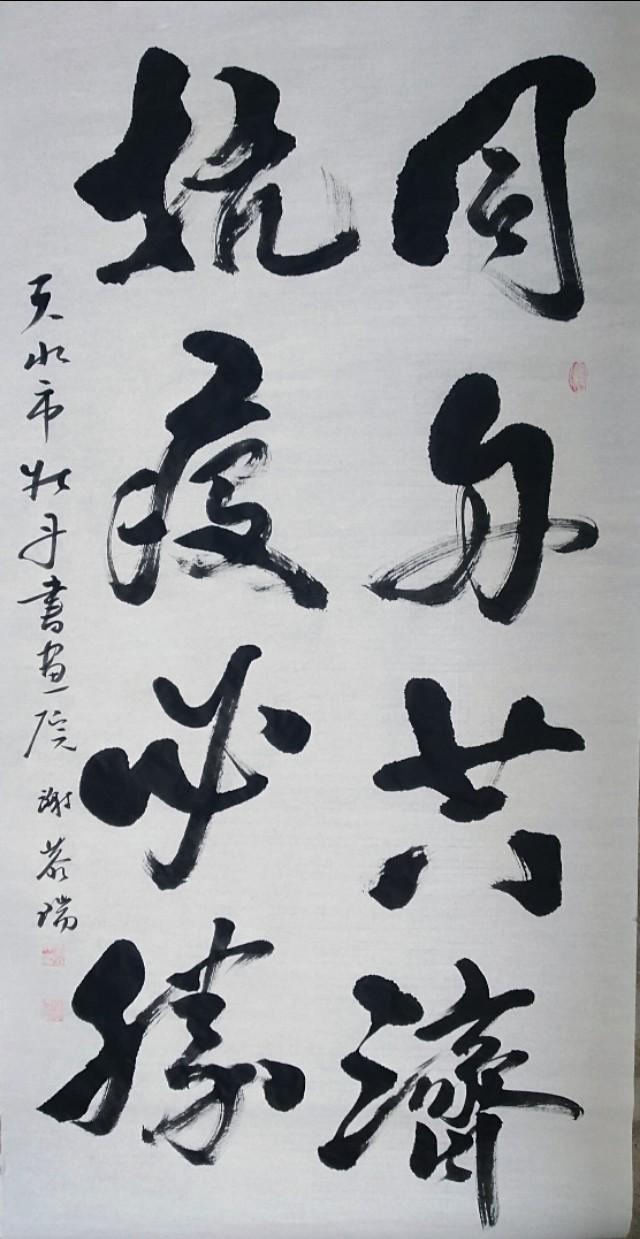 同舟共濟
抗疫必勝
天水市牡丹書画院 謝恭瑞